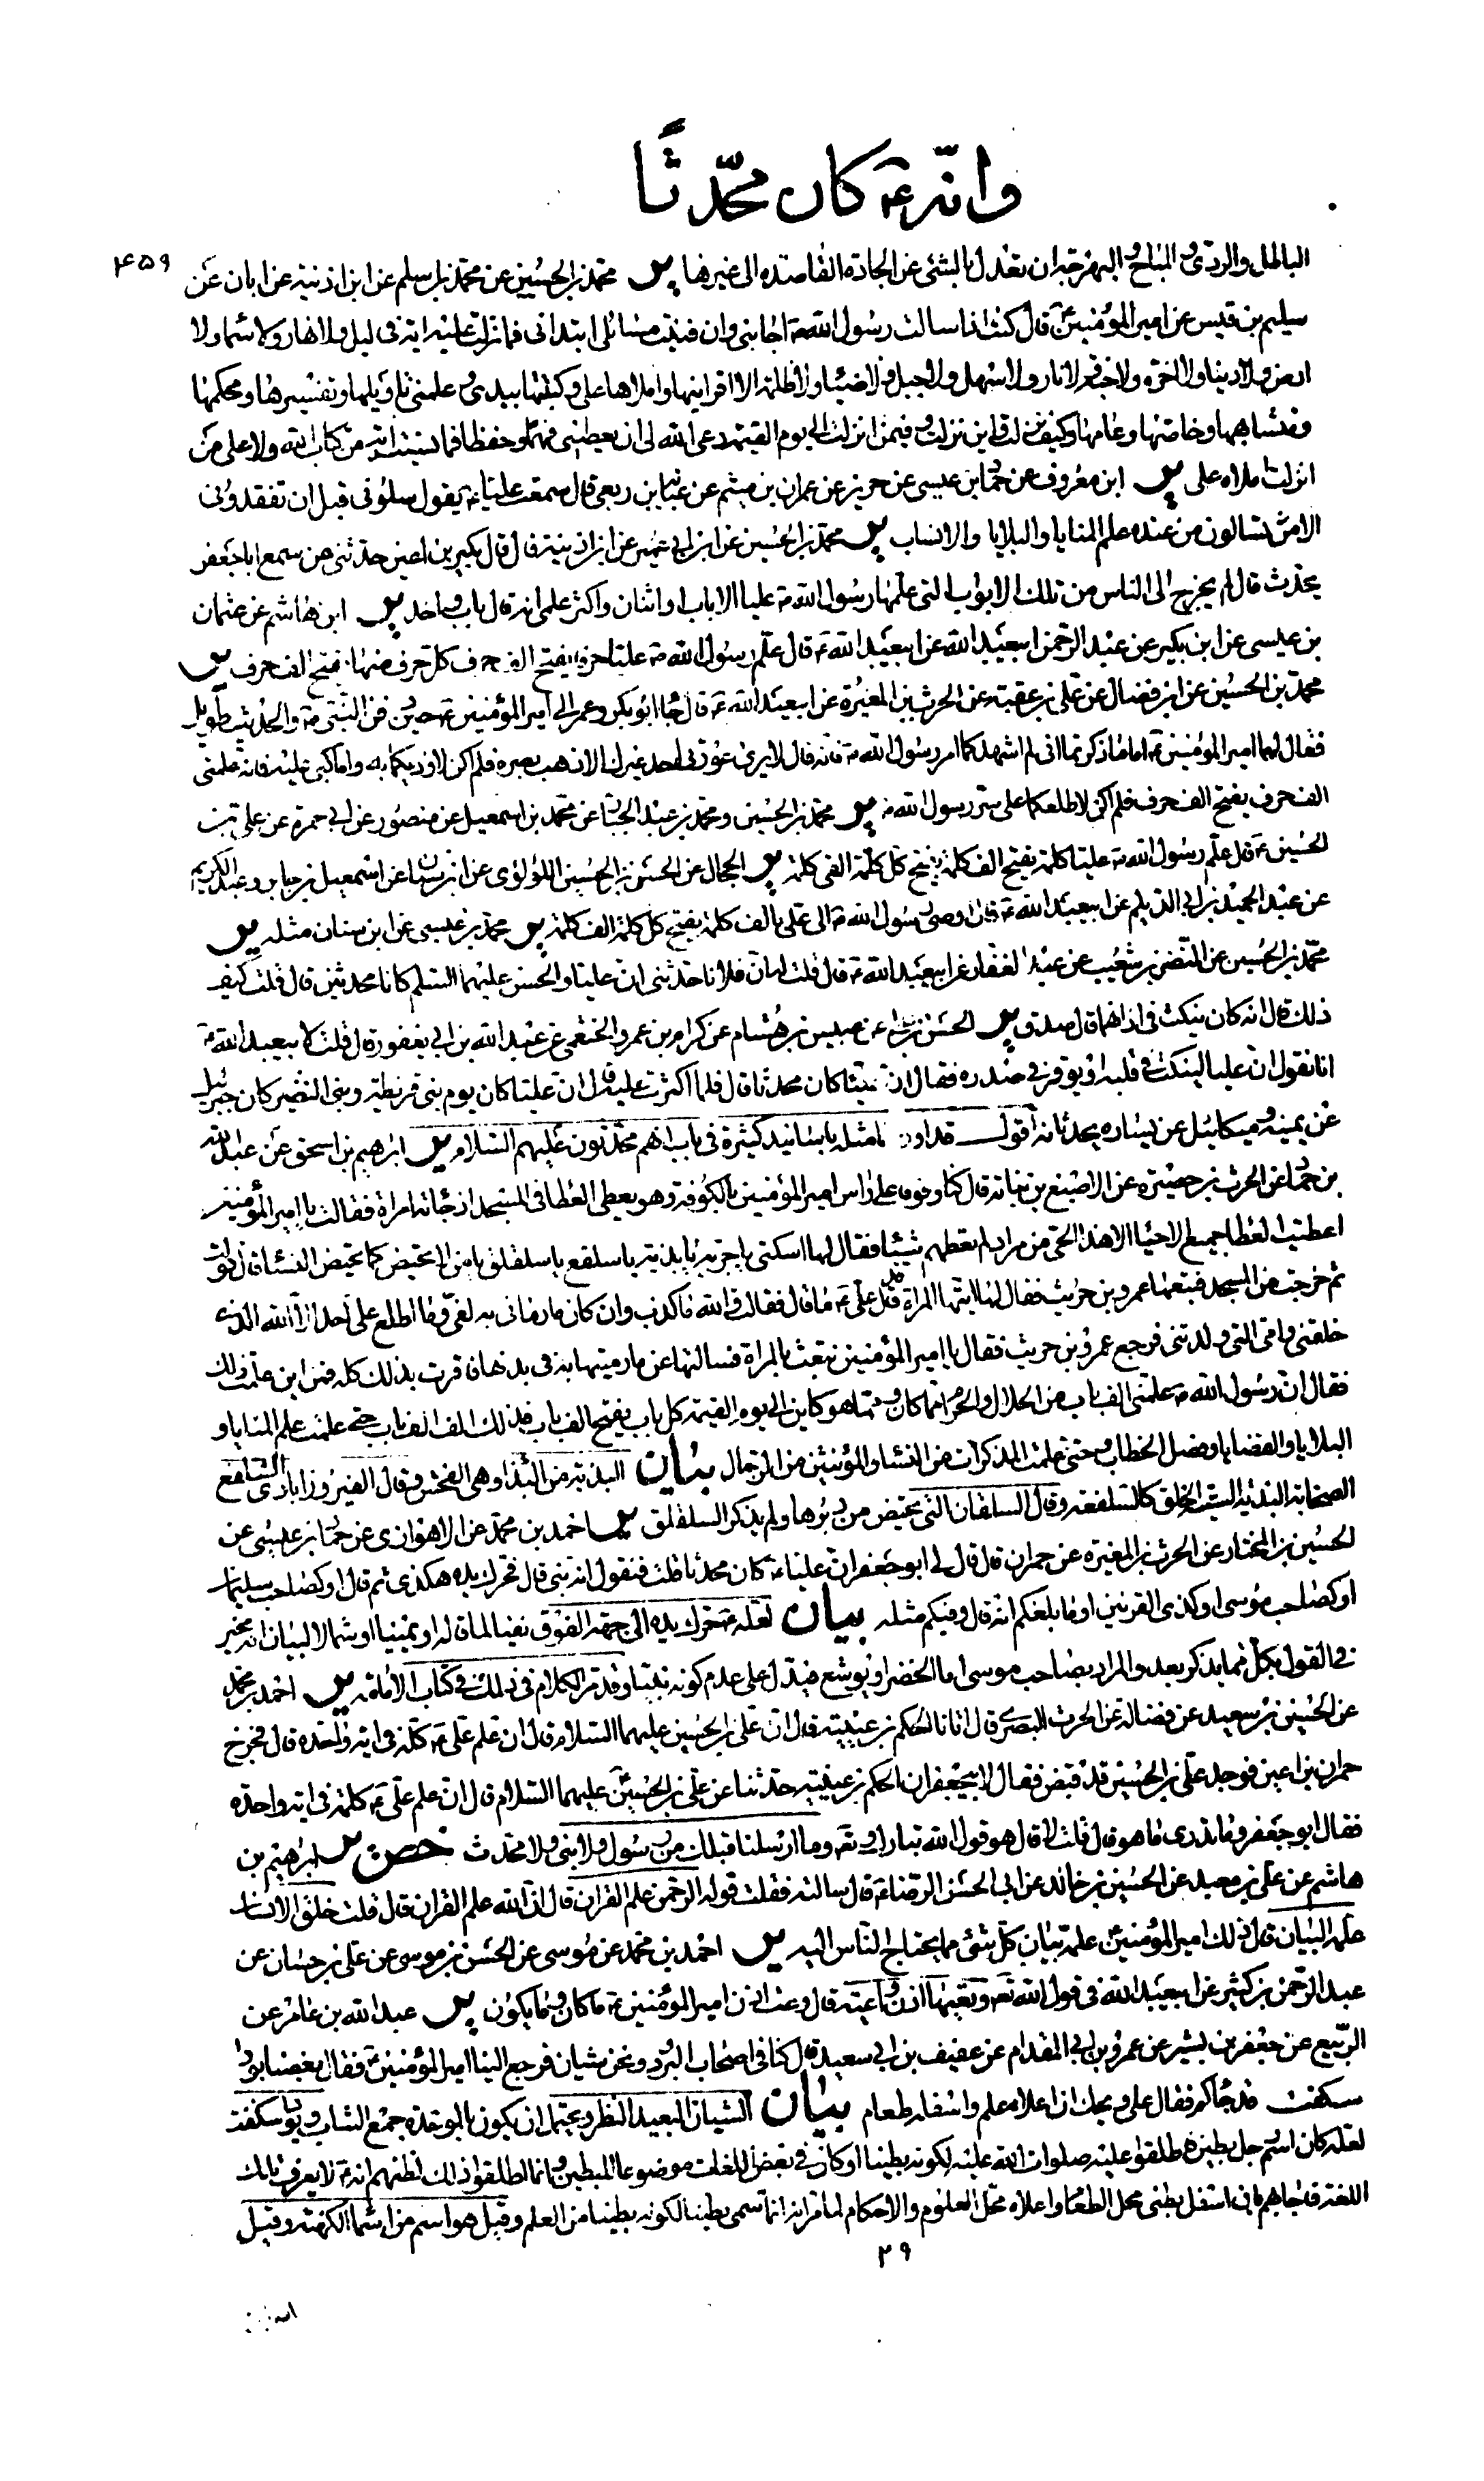 وانّه ع كان محدّثًا
۴۵۹
الباطل والردئ و المباح و البهرجة ان تعدل بالشئ عن الجادة القاصدة الى غيرها ير محمد بن الحسين عن محمد بن اسلم عن ابن اذنية عن ابان عن
سليم بن قيس عن امير المؤمنين ع قال كنت اذا سالت رسول الله ص اجابنى وان فنيت مسائلى ابتدانى فما نزلت عليه اية فى ليل ولا نهار ولا سماء ولا
ارض ولا دنيا ولا اخرة ولا جنة ولا نار ولا سهل ولا جبل ولا ضياء ولا ظلمة الا اقرانيها واملاها على وكتبتها بيدى و علمنى تاويلها وتفسيرها ومحكمها
ومتشابهها وخاصها وعامها وكيف نزلت واين نزلت وفيمن انزلت الى يوم القيمة دعى الله لى ان يعطينى فهما وحفظا فما نسيت اية من كتاب الله ولا على من
انزلت املاه على ير ابن معروف عن حماد بن عيسى عن حريز عن عمران بن ميثم عن عباية بن ربعى قال سمعت عليا ع يقول سلونى قبل ان تفقدونى
الا من تسالون من عنده علم المنايا والبلايا والانساب ير محمد بن الحسين عن ابن ابى عمير عن ابن اذينة قال قال بكير بن اعين حدثنى من سمع ابا جعفر
يحدث قال لم يخرج الى الناس من تلك الابواب التى علمها رسول الله ص عليا الا باب او اثنان واكثر علمى انه قال باب واحد ير ابن هاشم عن عثمان
بن عيسى عن ابن بكير عن عبد الرحمن ابيعبد الله عن ابيعبد الله ع قال علم رسول الله ص عليا حرفا يفتح الف حرف كل حرف منها يفتح الف حرف ير
محمد بن الحسين عن ابن فضال عن على بن عقبة عن الحرث بن المغيرة عن ابيعبد الله ع قال جاء ابو بكر وعمر الى امير المؤمنين ع حين دفن النبى ص والحديث طويل
فقال لهما امير المؤمنين ع اما ما ذكرتما انى لم اشهدكما امر رسول الله ص فانه قال لا يرى عورتى احد غيرك الا ذهب بصره فلم اكن لاوذيكما به واما كبى عليه فانه علمنى
الف حرف يفتح الف حرف فلم اكن لاطلعكما على سر رسول الله ص ير محمد بن الحسين ومحمد بن عبد الجبار عن محمد بن اسمعيل عن منصور عن ابى حمزة عن على بن
الحسين ع قال علم رسول الله ص عليا كلمة يفتح الف كلمة يفتح كل كلمة الف كلمة ير الحجال عن الحسن بن الحسين اللؤلؤى عن ابن سنان عن اسمعيل بن جابر وعبد الكريم
عن عبد الحميد بن ابى الديلم عن ابيعبد الله ع قال اوصى رسول الله ص الى على بالف كلمة يفتح كل كلمة الف كلمة ير محمد بن عيسى عن ابن سنان مثله ير
محمد بن الحسين عن النضر بن شعيب عن عبد الغفار عن ابيعبد الله ع قال قلت له ان فلانا حدثنى ان عليا والحسن عليهما السلام كانا محدثين قال قلت كيف
ذلك قال انه كان ينكت فى اذانهما قال صدق ير الحسن بن عن عبيس بن هشام عن كرام بن عمرو الخثعمى عن عبد الله بن ابى يعفور قال قلت لابيعبد الله ع
انا نقول ان عليا لينكت فى قلبه او يوقر فى صدره فقال ان عليا كان محدثا قال فلما اكثرت عليه قال ان عليا كان يوم بنى قريظة وبنى النضير كان جبرئيل
عن يمينه وميكائيل عن يساره يحدثانه اقول قد اوردنا مثله باسانيد كثيرة فى باب انهم محدثون عليهم السلام ير ابرهيم بن اسحق عن عبد الله
بن حماد عن الحرث بن حصيرة عن الاصبغ بن نباتة قال كنا وقوفا على راس امير المؤمنين بالكوفة وهو يعطى العطا فى المسجد اذ جائت امراة فقالت يا امير المؤمنين
اعطيت العطا جميع الاحياء الا هذا الحى من مراد لم تعطهم شيئا فقال لها اسكتى يا جرية يا بذية يا سلفع يا سلقلق يا من لا تحيض كما تحيض النساء قال فولت
ثم خرجت من المسجد فتبعها عمرو بن حريث فقال لها ايتها المراة قد قال على ع ما قال فقالت والله ما كذب وان كان ما رمانى به لفى وما اطلع على احد الا الله الذى
خلقنى وامى التى ولدتنى فرجع عمرو بن حريث فقال يا امير المؤمنين تبعت المراة فسالتها عن ما رميتها به فى بدنها فاقرت بذلك كله فمن اين علمت ذلك
فقال ان رسول الله ص علمنى الف باب من الحلال والحرام مما كان ومما هو كاين الى يوم القيمة كل باب يفتح الف باب فذلك الف الف باب حتى علمت علم المنايا و
البلايا والقضايا وفصل الخطاب وحتى علمت المذكرات من النساء والمؤنثين من الرجال بيان البذية من البذاء وهى الفحش وقال الفيروزابادى السلفع
الصخابة البذية السيئة الخلق كالسلفعة وقال السلقان التى تحيض من دبرها ولم يذكر السلقلق ير احمد بن محمد عن الاهوازى عن حماد بن عيسى عن
الحسين بن المختار عن الحرث بن المغيرة عن حمران قال قال لى ابو جعفر ان عليا ع كان محدثا قلت فنقول انه نبى قال فحرك يده هكذى ثم قال او كصاحب سليمان
او كصاحب موسى او كذى القرنين او ما بلغكم انه قال وفيكم مثله بيان لعله ع حرك يده الى جهة الفوق نفيا لما قاله او يمينا او شمالا لبيان انه مخير
فى القول بكل مما يذكر بعد والمراد بصاحب موسى اما الخضر او يوشع فيدل على عدم كونه نبيا وقد مر الكلام فى ذلك فى كتاب الامامة ير احمد بن محمد
عن الحسين بن سعيد عن فضالة عن الحرث البصرى قال اتانا الحكم بن عيينة قال ان على بن الحسين عليهما السلام قال ان علم على ع كله فى اية واحدة قال فخرج
حمران بن اعين فوجد على بن الحسين قد قبض فقال لابيجعفر ان الحكم بن عيينة حدثنا عن على بن الحسين عليهما السلام قال ان علم على ع كله فى اية واحدة
فقال ابو جعفر وما تدرى ما هو قال قلت لا قال هو قول الله تبارك وتع وما ارسلنا قبلك من رسول ولا نبى ولا محدث خص ير ابرهيم بن
هاشم عن على بن معبد عن الحسين بن خالد عن ابى الحسن الرضا ع قال سالته فقلت قوله الرحمن علم القران قال ان الله علم القران قال قلت خلق الانسان
علمه البيان قال ذلك امير المؤمنين علمه بيان كل شئ مما يحتاج الناس اليه ير احمد بن محمد عن موسى عن الحسن بن موسى عن على بن حسان عن
عبد الرحمن بن كثير عن ابيعبد الله فى قول الله تع وتعيها اذن واعية قال وعت اذن امير المؤمنين ع ما كان وما يكون ير عبد الله بن عامر عن
الربيع عن جعفر بن بشير عن عمرو بن ابى المقدام عن عفيف بن ابى سعيد قال كنا فى اصحاب البرود ونحن شبان فرجع الينا امير المؤمنين ع فقال بعضنا بوذا
سكفت قد جاءكم فقال على ويحك ان اعلاه علم واسفله طعام بيان الشيان البعيد النظر ويحتمل ان يكون بالموحدة جمع الشاب وبوذا سكفت
لعله كان اسم رجل بطين فاطلقوا عليه صلوات الله عليه لكونه بطينا او كان فى بعض اللغات موضوعا للبطين وانما اطلقوا ذلك لظنهم انه ع لا يعرف تلك
اللغة فاجابهم بان اسفل بطنى محل الطعام واعلاه محل العلوم والاحكام لما مر انه انما سمى بطينا لكونه بطينا من العلم وقيل هو اسم من اسماء الكهنة وقيل
۲۹